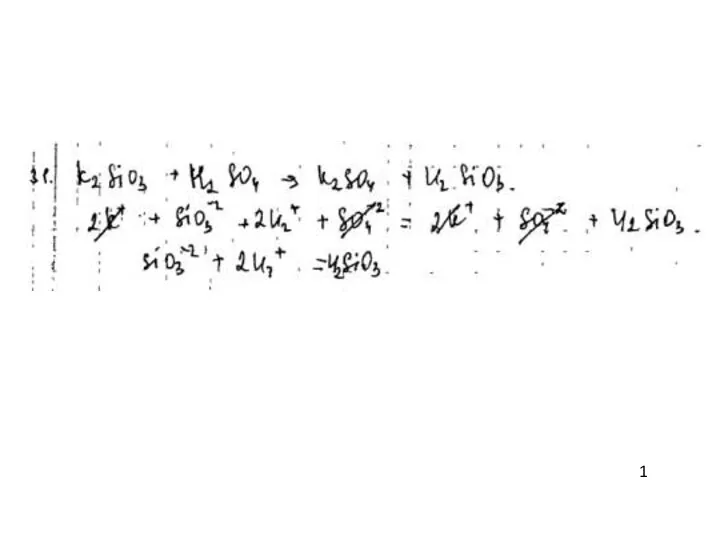 31. K₂SiO₃ + H₂SO₄ → K₂SO₄ + H₂SiO₃.
2K⁺ + SiO₃⁻² + 2H₂⁺ + SO₄⁻² = 2K⁺ + SO₄⁻² + H₂SiO₃.
SiO₃⁻² + 2H₂⁺ = H₂SiO₃
1